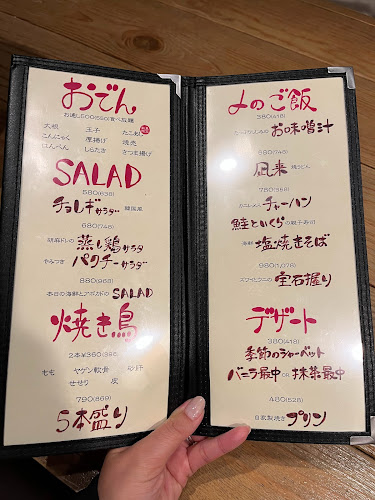 おでん
お通し500(550)食べ放題
大根 玉子 たこあげ
こんにゃく 厚揚げ 焼売
はんぺん しらたき さつま揚げ
SALAD
580(638)
チョレギサラダ 韓国風
680(748)
胡麻だれの 蒸し鶏サラダ
やみつき パクチーサラダ
880(968)
本日の海鮮とアボカドのSALAD
焼き鳥
2本¥360(396)
もも ヤゲン軟骨 砂肝
せせり 皮
790(869)
5本盛り
〆のご飯
380(418)
お味噌汁
凪来 鶏うどん
チャーハン
鮭といくらの親子寿司
海鮮 塩焼きそば
980(1,078)
ズワイとウニの 宝石握り
デザート
380(418)
季節のシャーベット
バニラ最中 OR 抹茶最中
480(528)
自家製焼き プリン